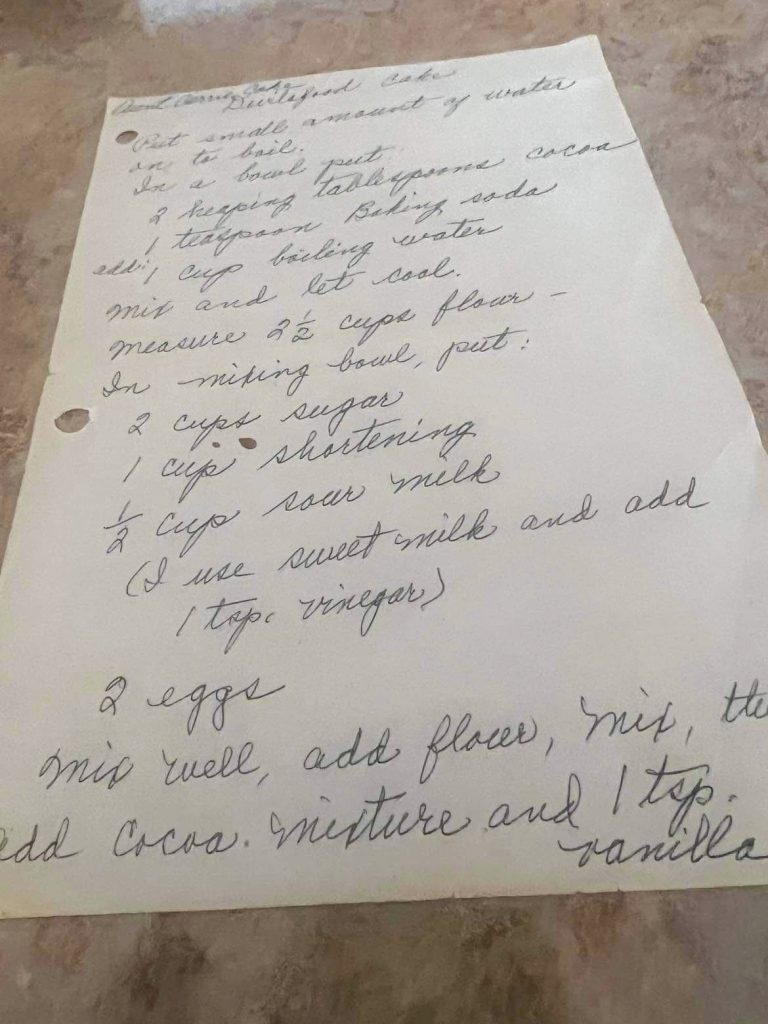 Aunt Carrie Cake
Devilsfood Cake
Put small amount of water
on to boil.
In a bowl put
2 heaping tablespoons cocoa
1 teaspoon Baking soda
add: 1 cup boiling water
Mix and let cool.
Measure 2 1/2 cups flour –
In mixing bowl, put:
2 cups sugar
1 cup shortening
1/2 cup sour milk
(I use sweet milk and add
1 tsp. vinegar)
2 eggs
Mix well, add flour, mix, the
add cocoa mixture and 1 tsp.
vanilla